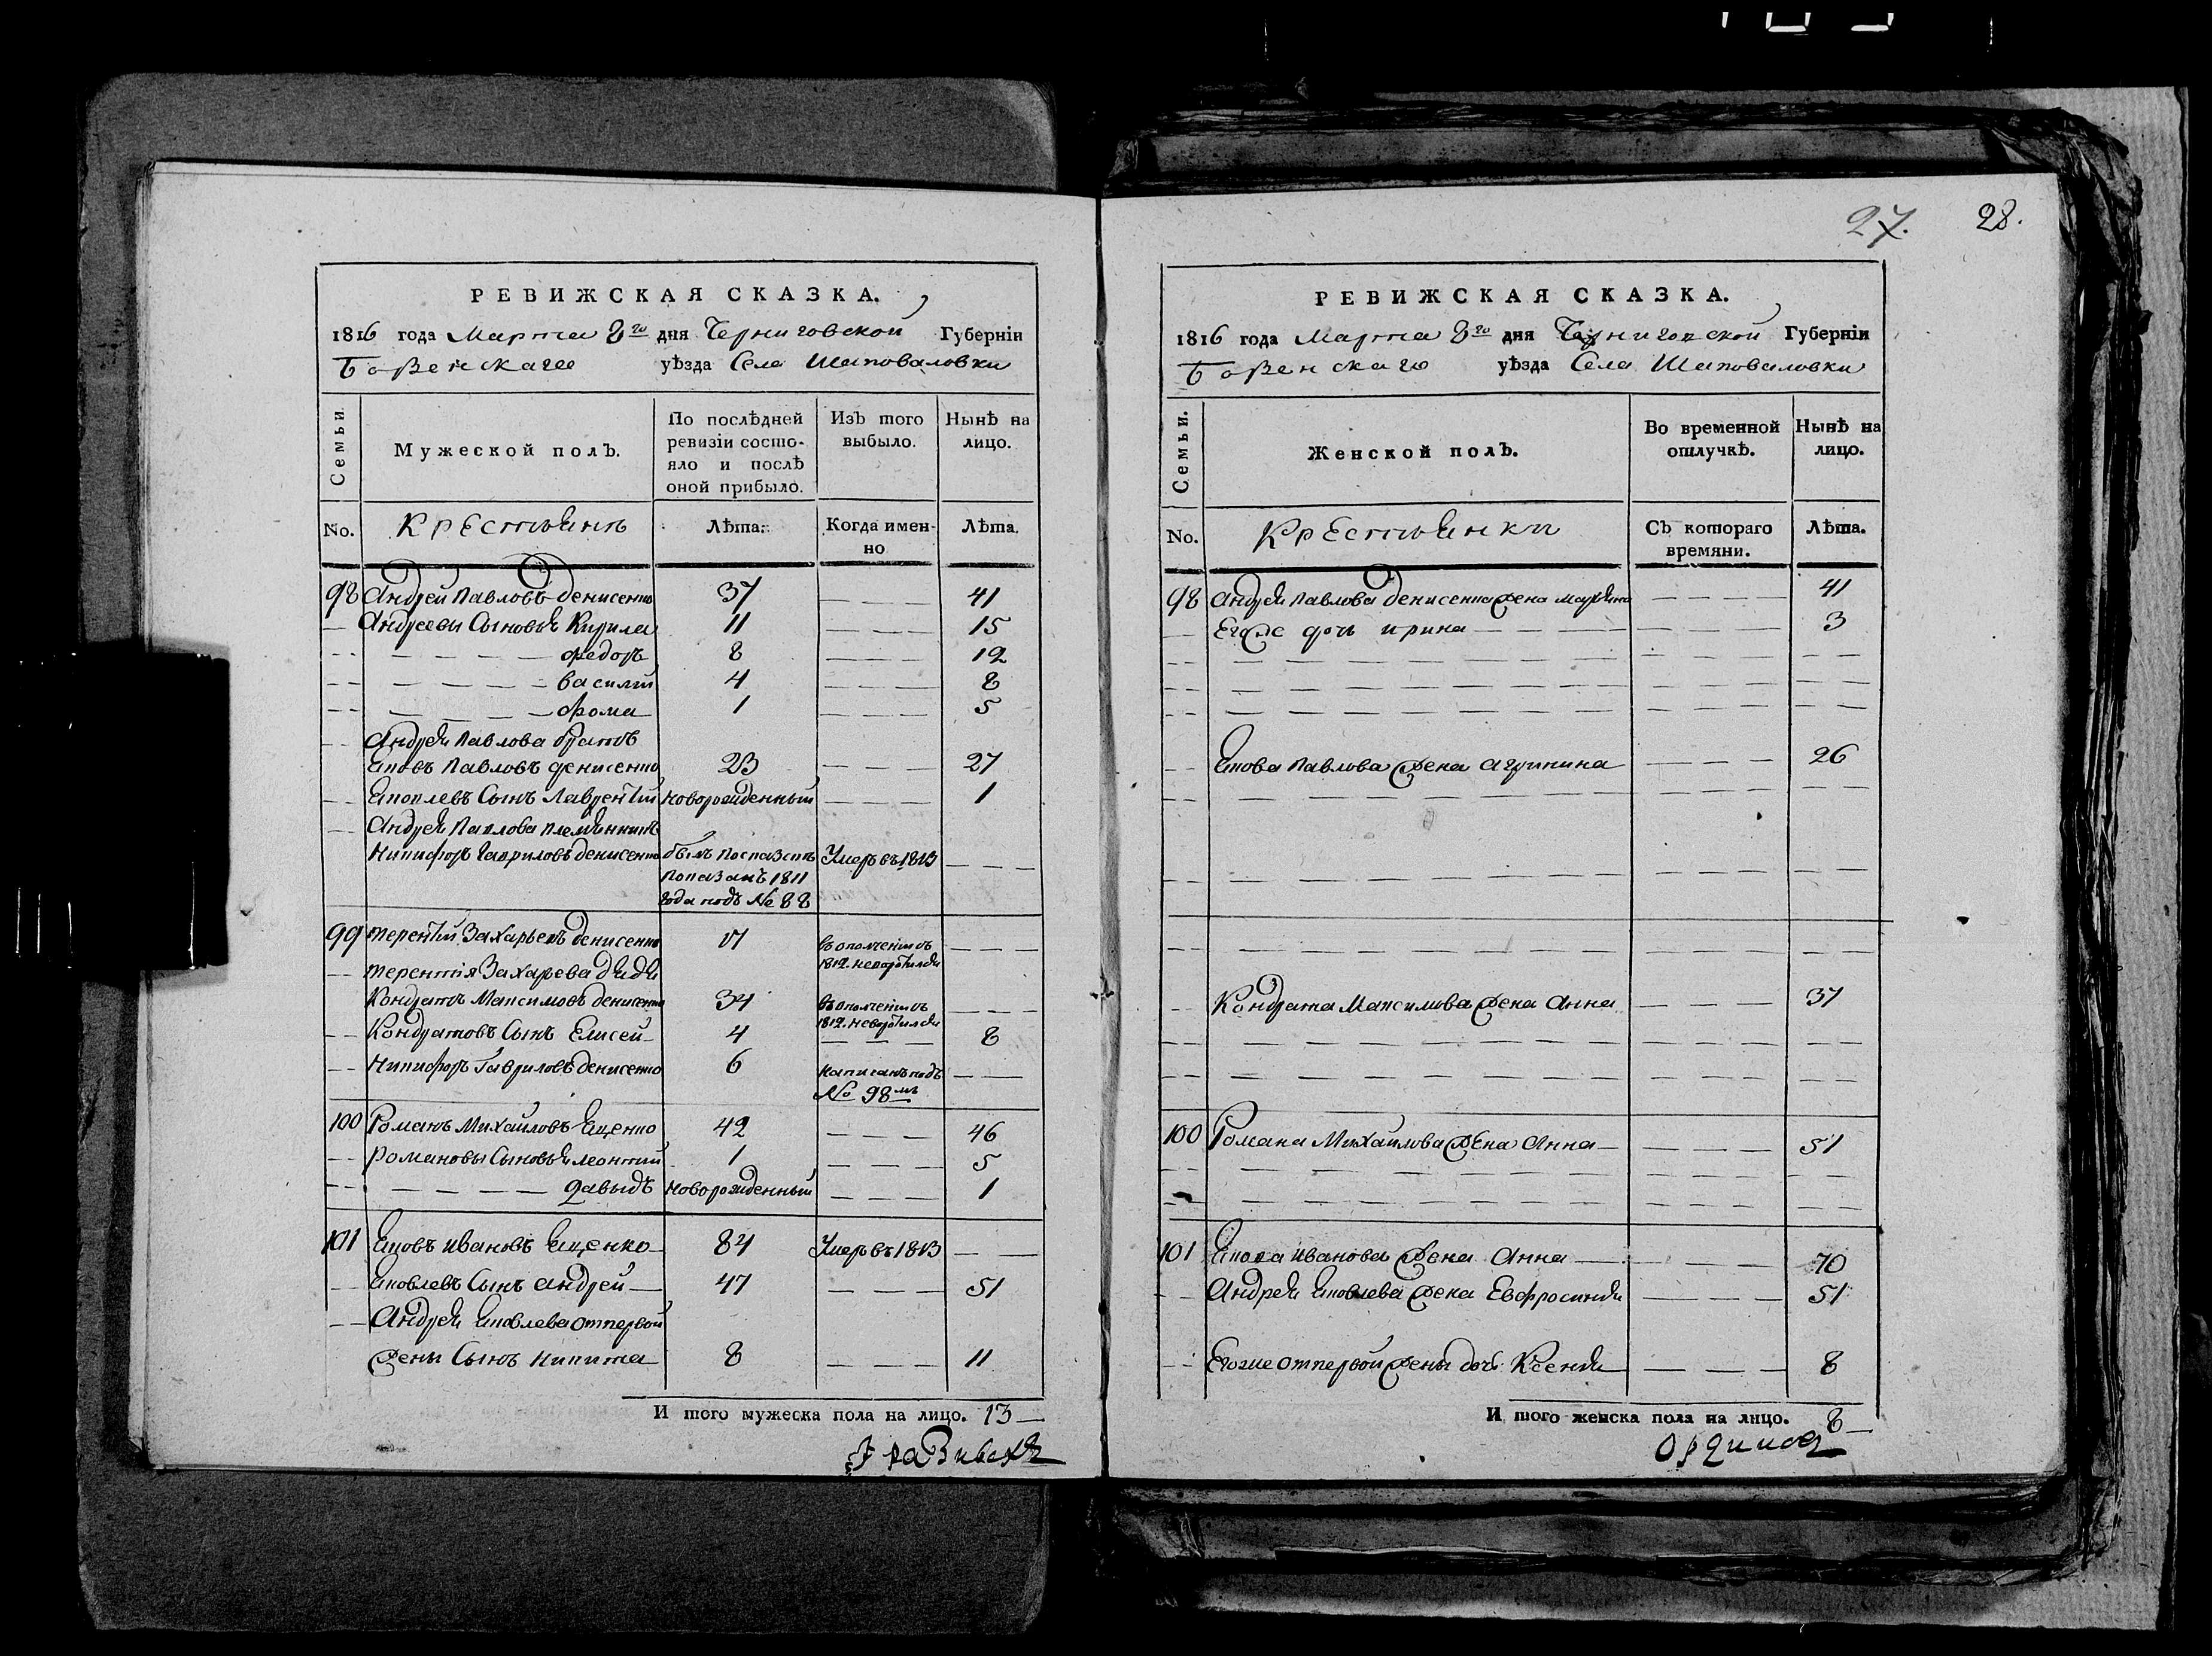 27. 28.
РЕВИЖСКАЯ СКАЗКА.
1816 года Марта 8го дня Черниговской Губернїи
Борзенскаго уѣзда Села Шаповаловки
Семьи
Мужеской полъ.
По послѣдней ревизїи состо-
яло и послѣ оной прибыло.
Изъ того выбыло.
Нынѣ на лицо.
No. Крестьянъ Лѣта. Когда имен-
но Лѣта.
98 Андрей Павловъ Денисенко 37 — — — 41
— Андреевы Сыновья Кирила 11 — — — 15
— — — — — — федоръ 8 — — — 12
— — — — — — василий 4 — — — 8
— — — — — — фома 1 — — — 5
— — Андрея Павлова братъ
Яковъ Павловъ денисенко 23 — — — 27
— — Яковлевъ Сынъ Лаврентїй новорожденный — — — 1
— Андрея Павлова племянникъ
Никифоръ Гавриловъ денисенко Умеръ въ 1813 — — —
показанъ 1811
года подъ № 88
99 терентїй Захарьевъ денисенко 17 въ ополченїи съ — — —
1812. неворотился
— терентїя Захарьева дядя
Кондратъ Максимовъ денисенко 34 въ ополченїи съ — — —
1812. неворотился
— — Кондратовъ Сынъ Елисей 4 — — — 8
— — Никифоръ Гавриловъ денисенко 6 написанъ подъ — —
№ 98мъ
100 Романъ Михайловъ Яценко 42 — — — 46
— — Романовы Сыновья леонтий 1 — — — 5
— — — — — — давыдъ новорожденный — — — 1
101 Яковъ ивановъ Яценко 84 Умеръ въ 1813 — —
— Яковлевъ Сынъ андрей 47 — — — 51
— — Андрея Яковлева отпервой
жены Сынъ никита 8 — — — 11
И того мужеска пола на лицо. 13 —
РЕВИЖСКАЯ СКАЗКА.
1816 года Марта 8го дня Черниговской Губернїи
Борзенскаго уѣзда Села Шаповаловки
Семьи.
Женской полъ.
Во временной отлучкѣ.
Нынѣ на лицо.
No. Крестьянки Съ котораго времяни. Лѣта.
98 Андрея Павлова денисенка жена марьяна — — — — 41
— — Егоже дочь ирина — — — — — — — 3
— — Якова Павлова жена агрипина — — — 26
— — Кондрата Максимова жена Анна — — — 37
100 Романа Михайлова жена Анна — — — — 51
101 Якова иванова жена Анна — — — — 70
— — Андрея Яковлева жена Евфросиния — — — — 51
— — Егоже отпервой жены дочь Ксения — — — 8
И того женска пола на лицо. 8 —